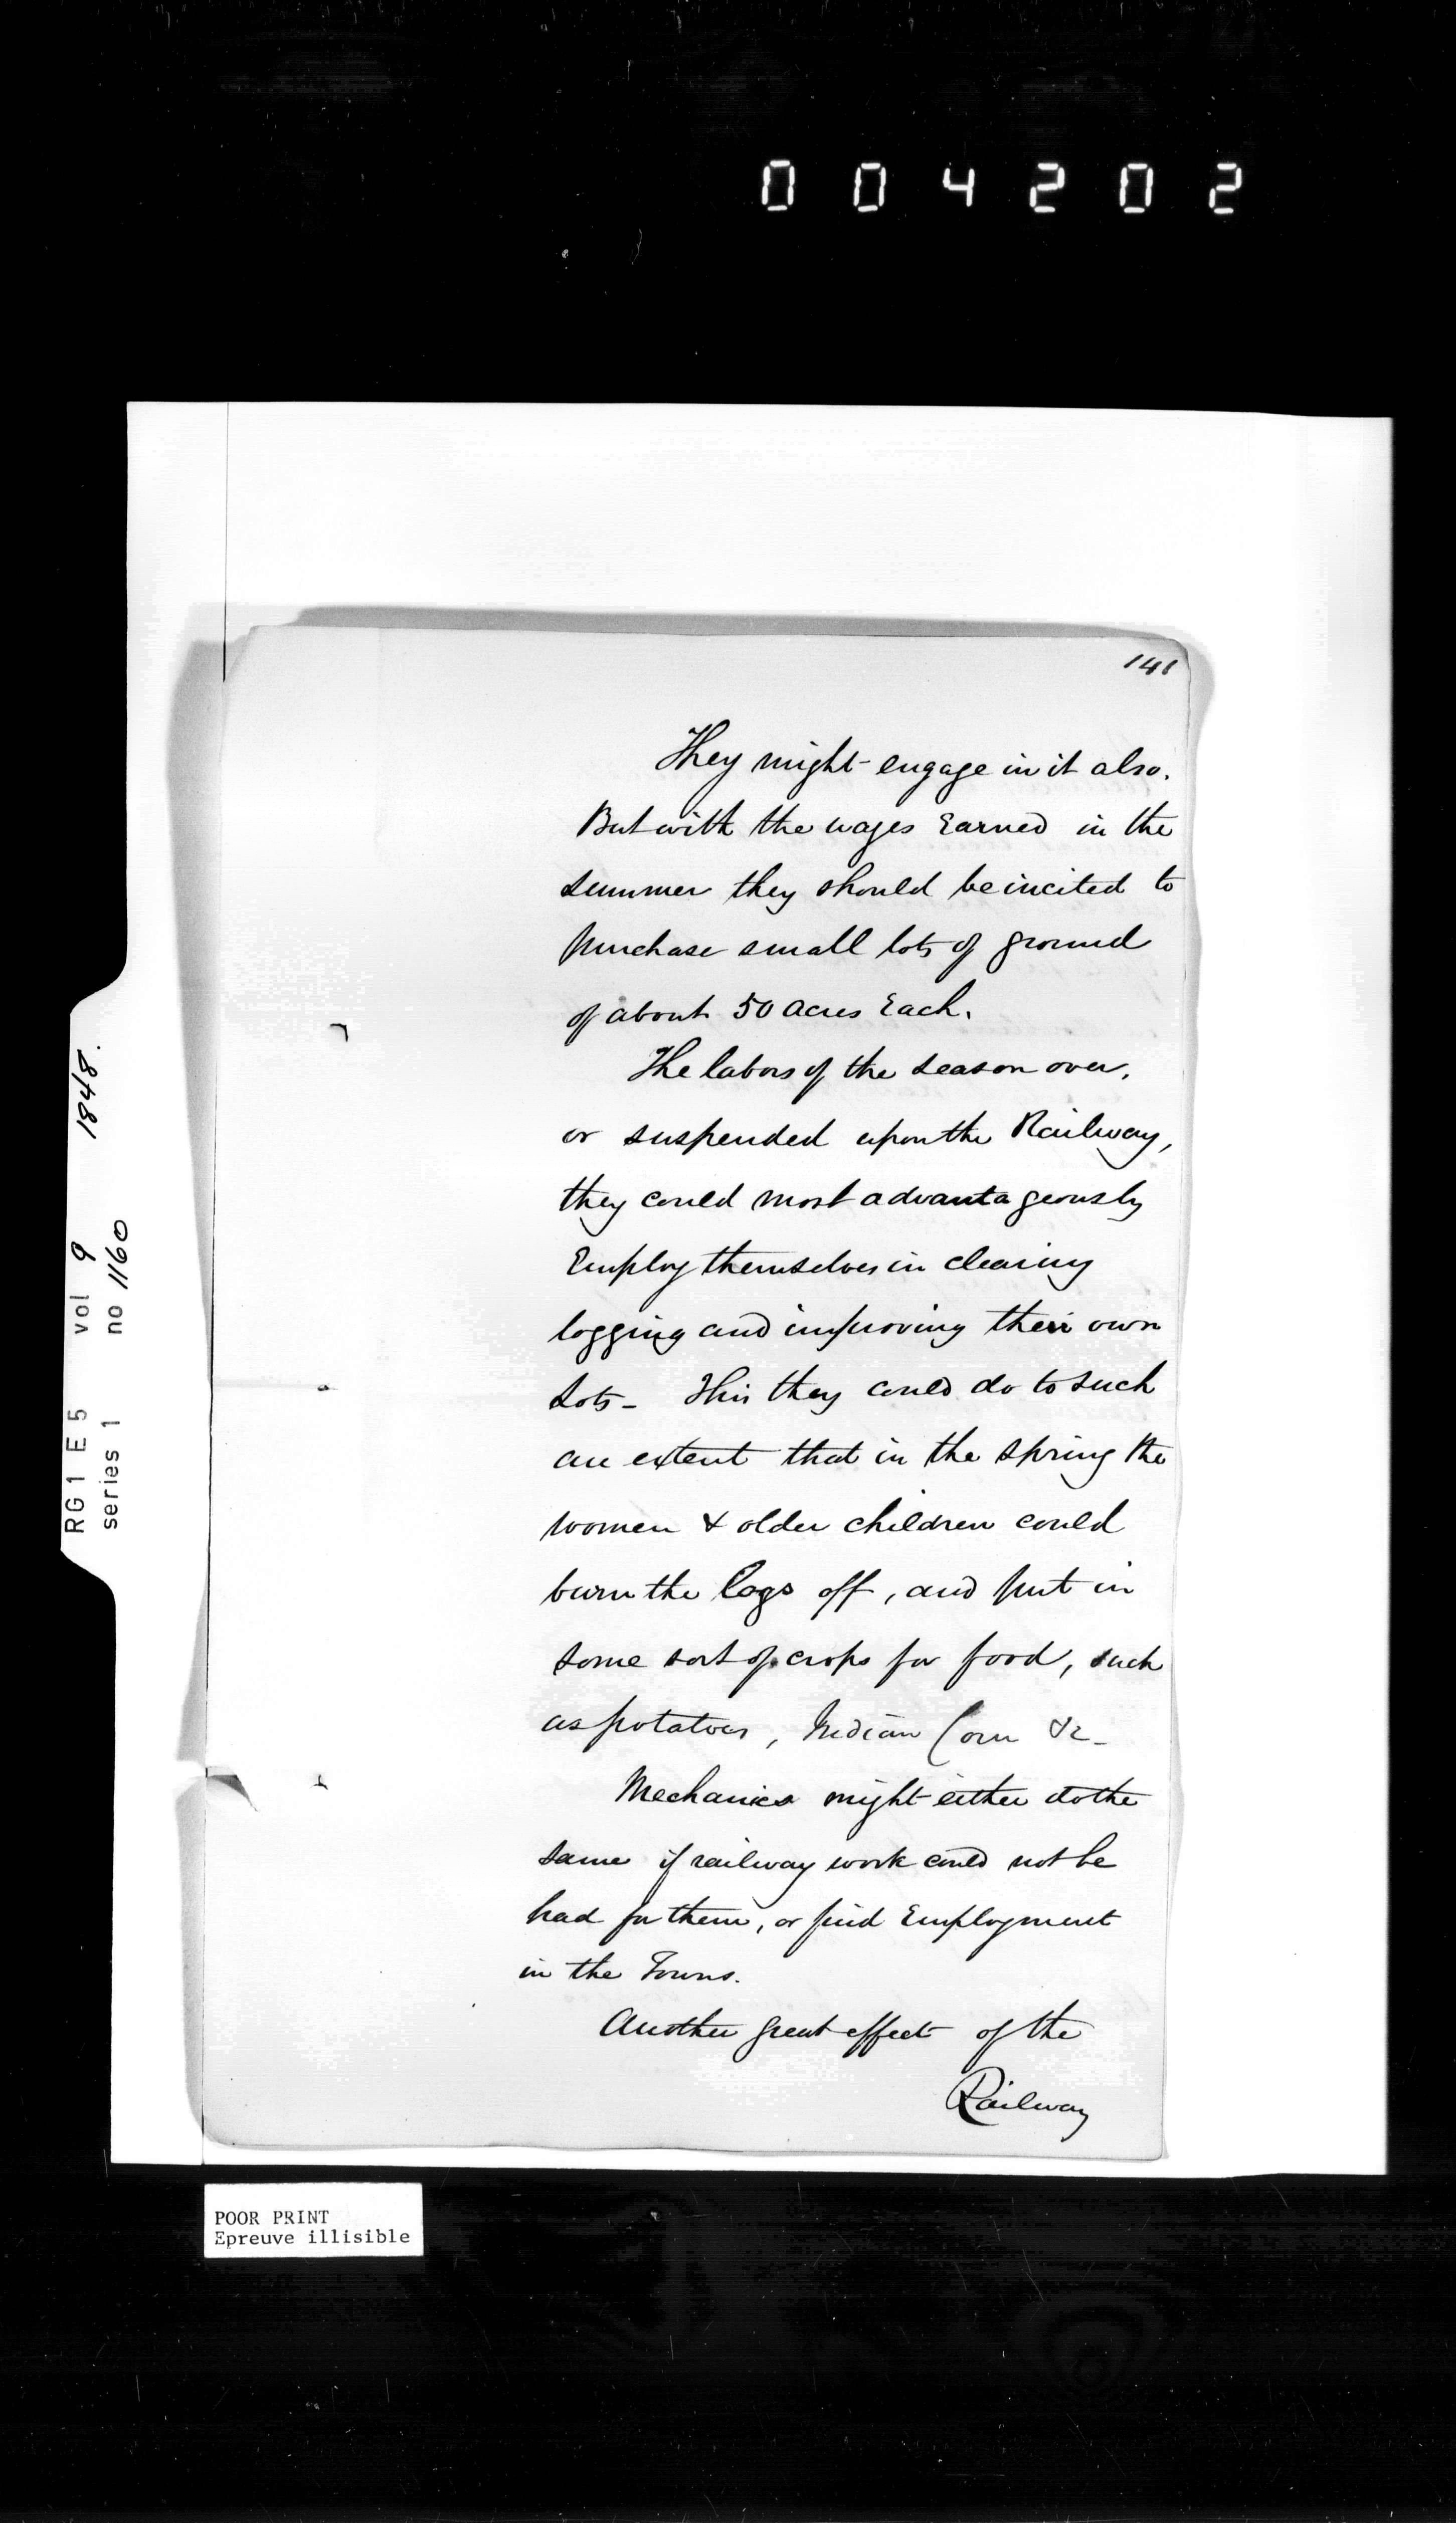 004202
141
They might engage in it also.
But with the wages Earned in the
summer they should be incited to
purchase small lots of ground
of about 50 acres Each.
The labors of the season over,
or suspended upon the Railway,
they could most advantageously
Employ themselves in clearing
logging and improving their own
Lots - This they could do to such
an extent that in the spring the
women & older children could
burn the logs off, and put in
some sort of crops for food, such
as potatoes, Indian Corn &c -
Mechanics might either do the
same if railway work could not be
had for them, or find Employment
in the Towns.
Another great effect of the
Railway
RG1 E5 vol 9 1848.
series 1 no 1160
POOR PRINT
Epreuve illisible